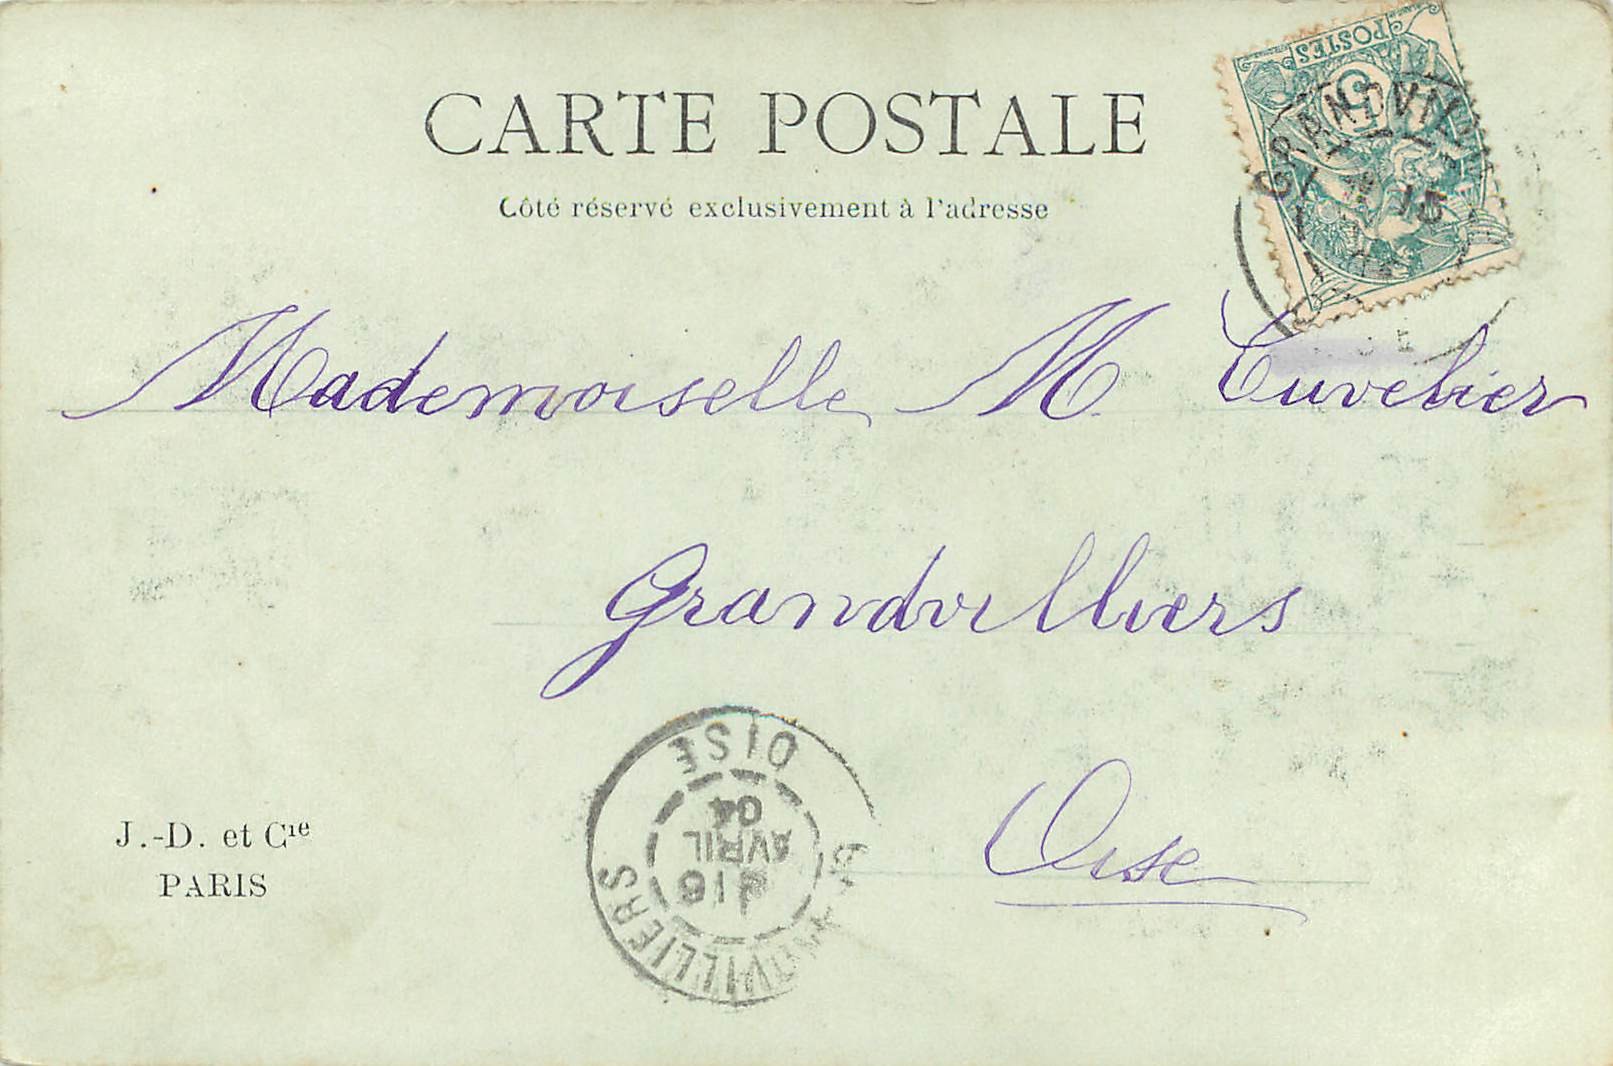 CARTE POSTALE
Côté réservé exclusivement à l'adresse
POSTES
5
GRANDVILL
15
Mademoiselle M. Cuvelier
Grandvilliers
Oise
J.-D. et Cie
PARIS
VILLIERS
16
AVRIL
04
OISE